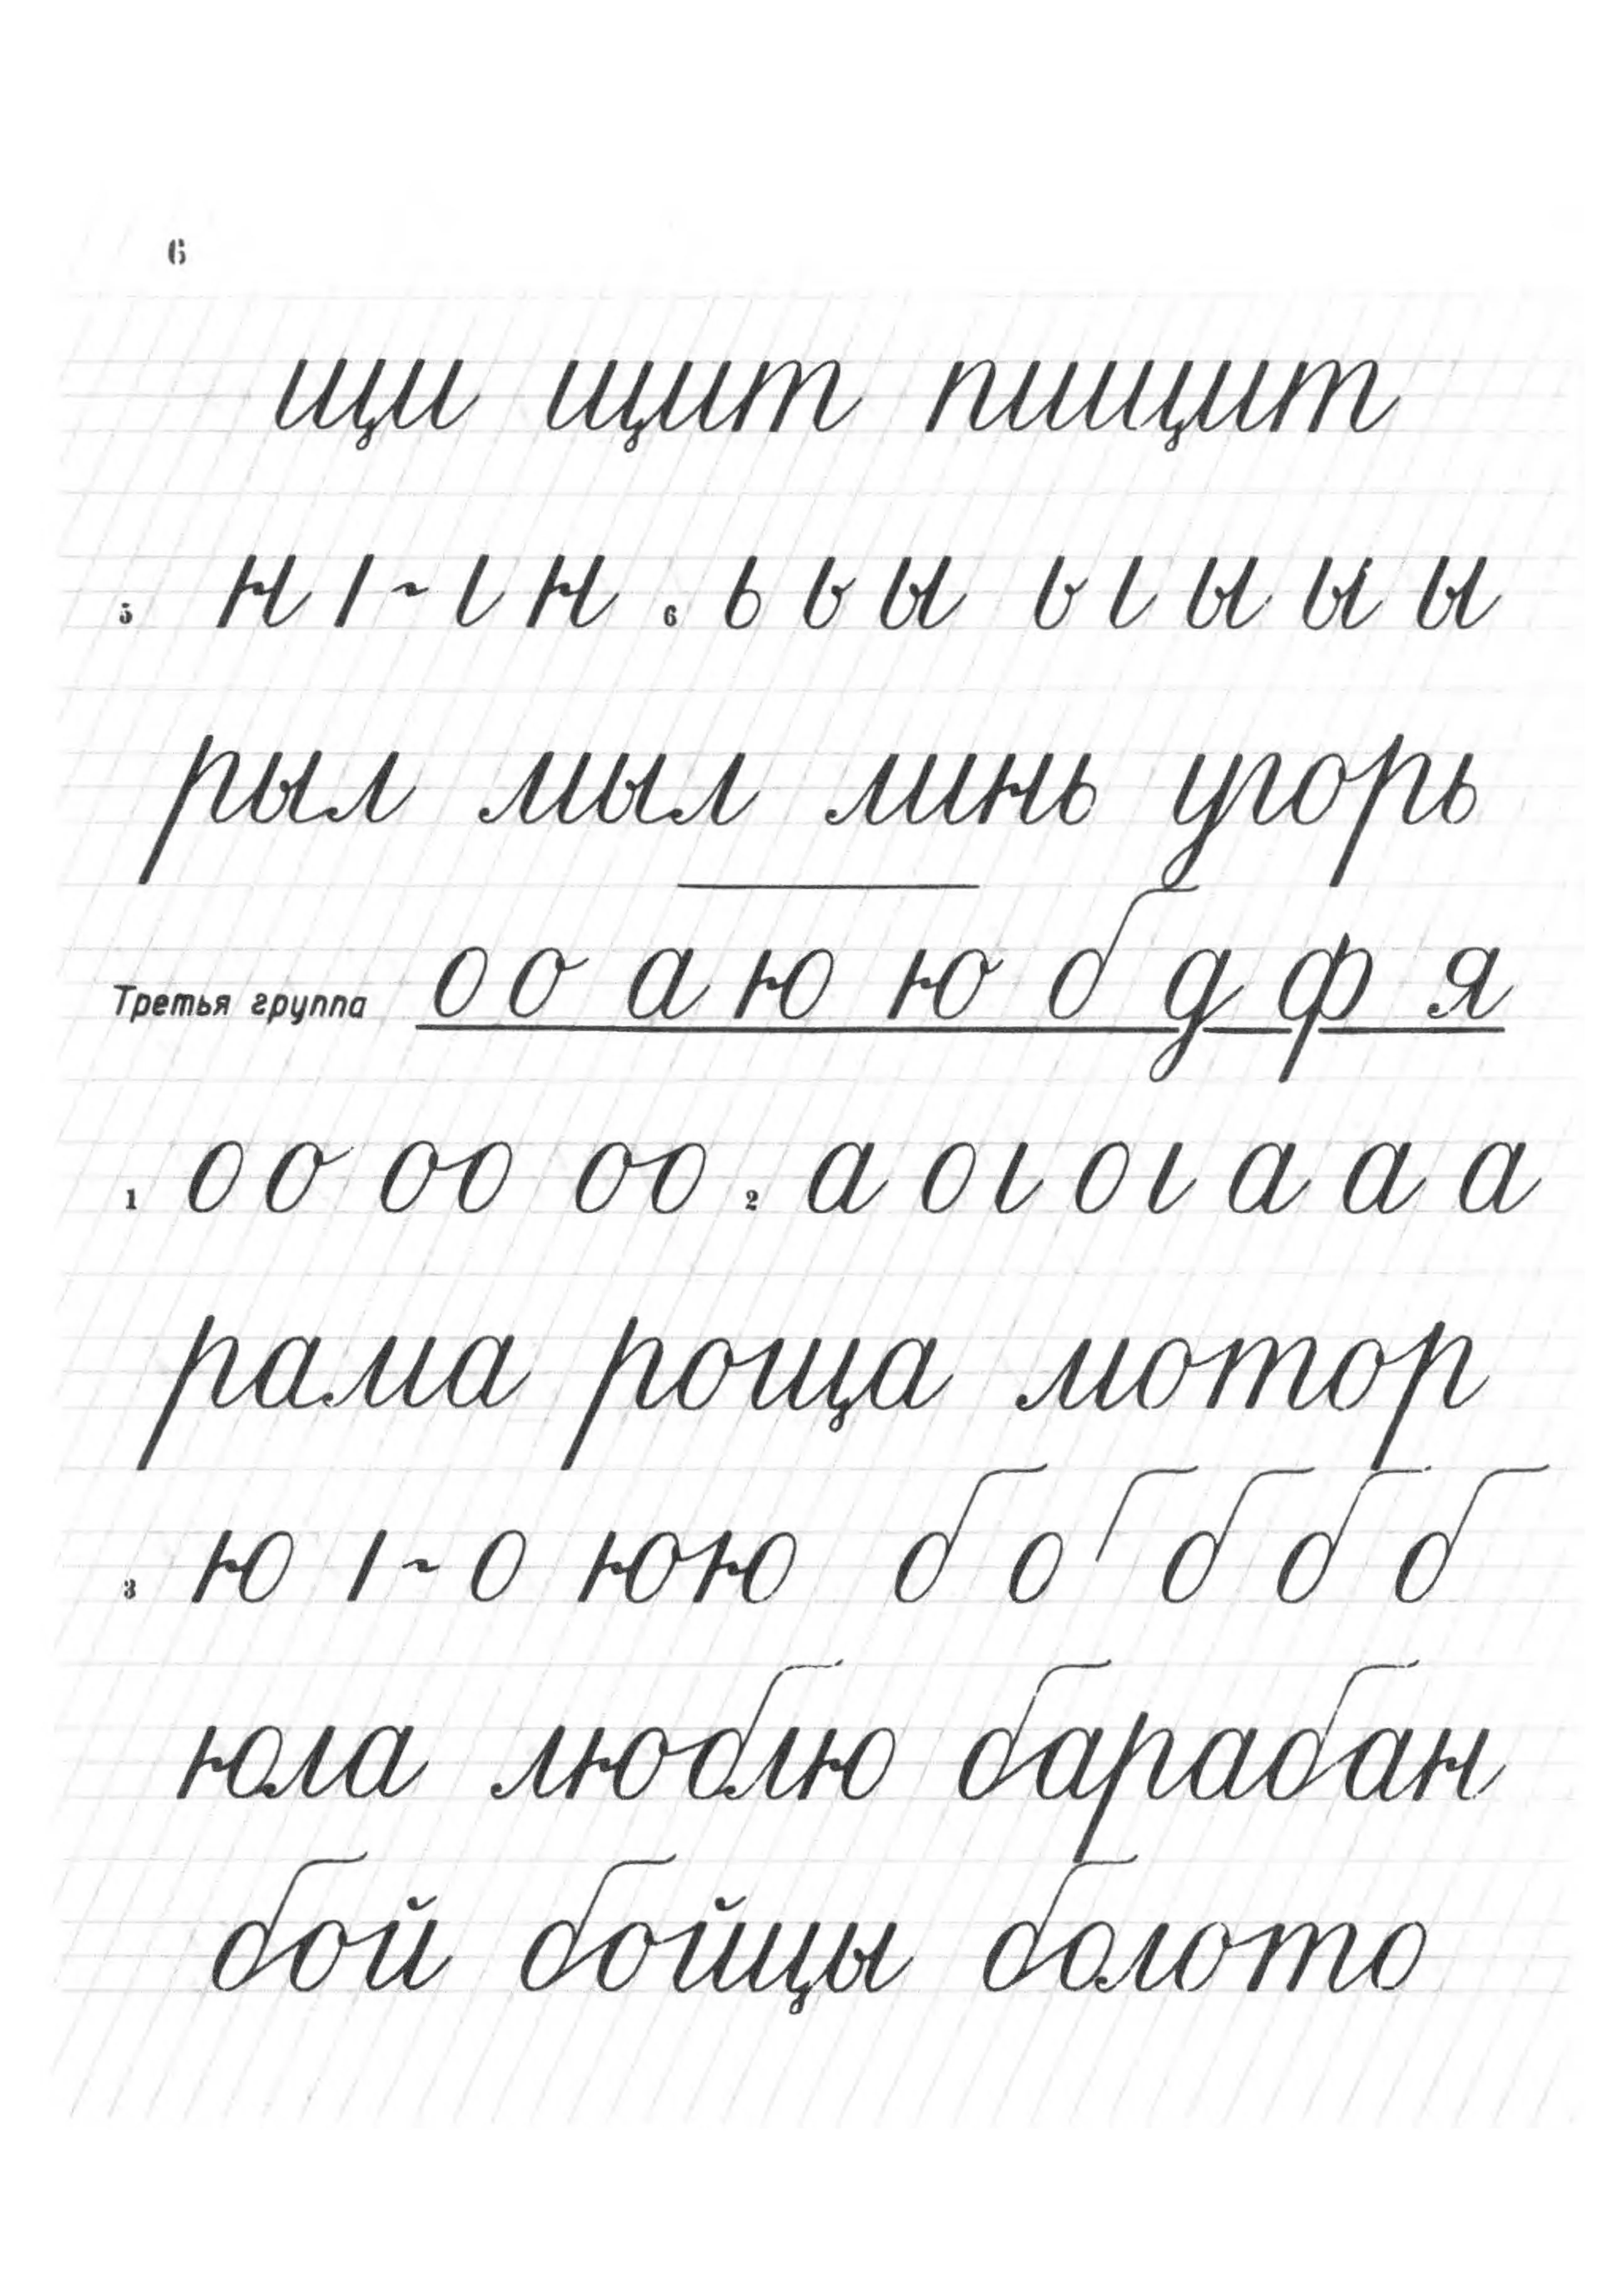 6
щи щит пищит
5 н ı ~ ı н . 6 ь ы ы ь ı ы ы ы
рыл мыл линь угорь
Третья группа о о а ю ю б д ф я
1 оо оо оо . 2 а о ı о ı а а а
рама роща мотор
3 ю ı ~ о юю б о ſ б б б
юла люблю барабан
бой бойцы болото